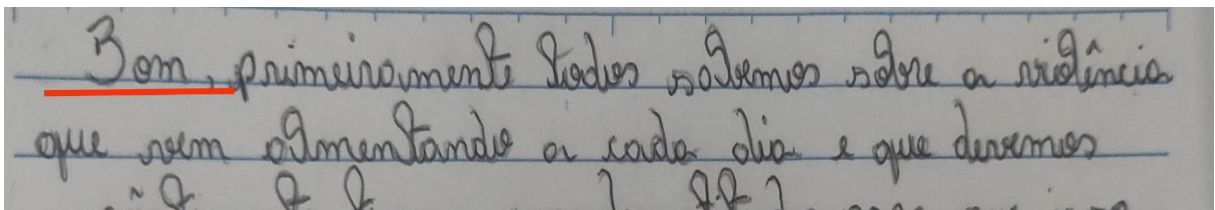 Bom, primeiramente todos sabemos sobre a violência
que vem almentando a cada dia e que devemos